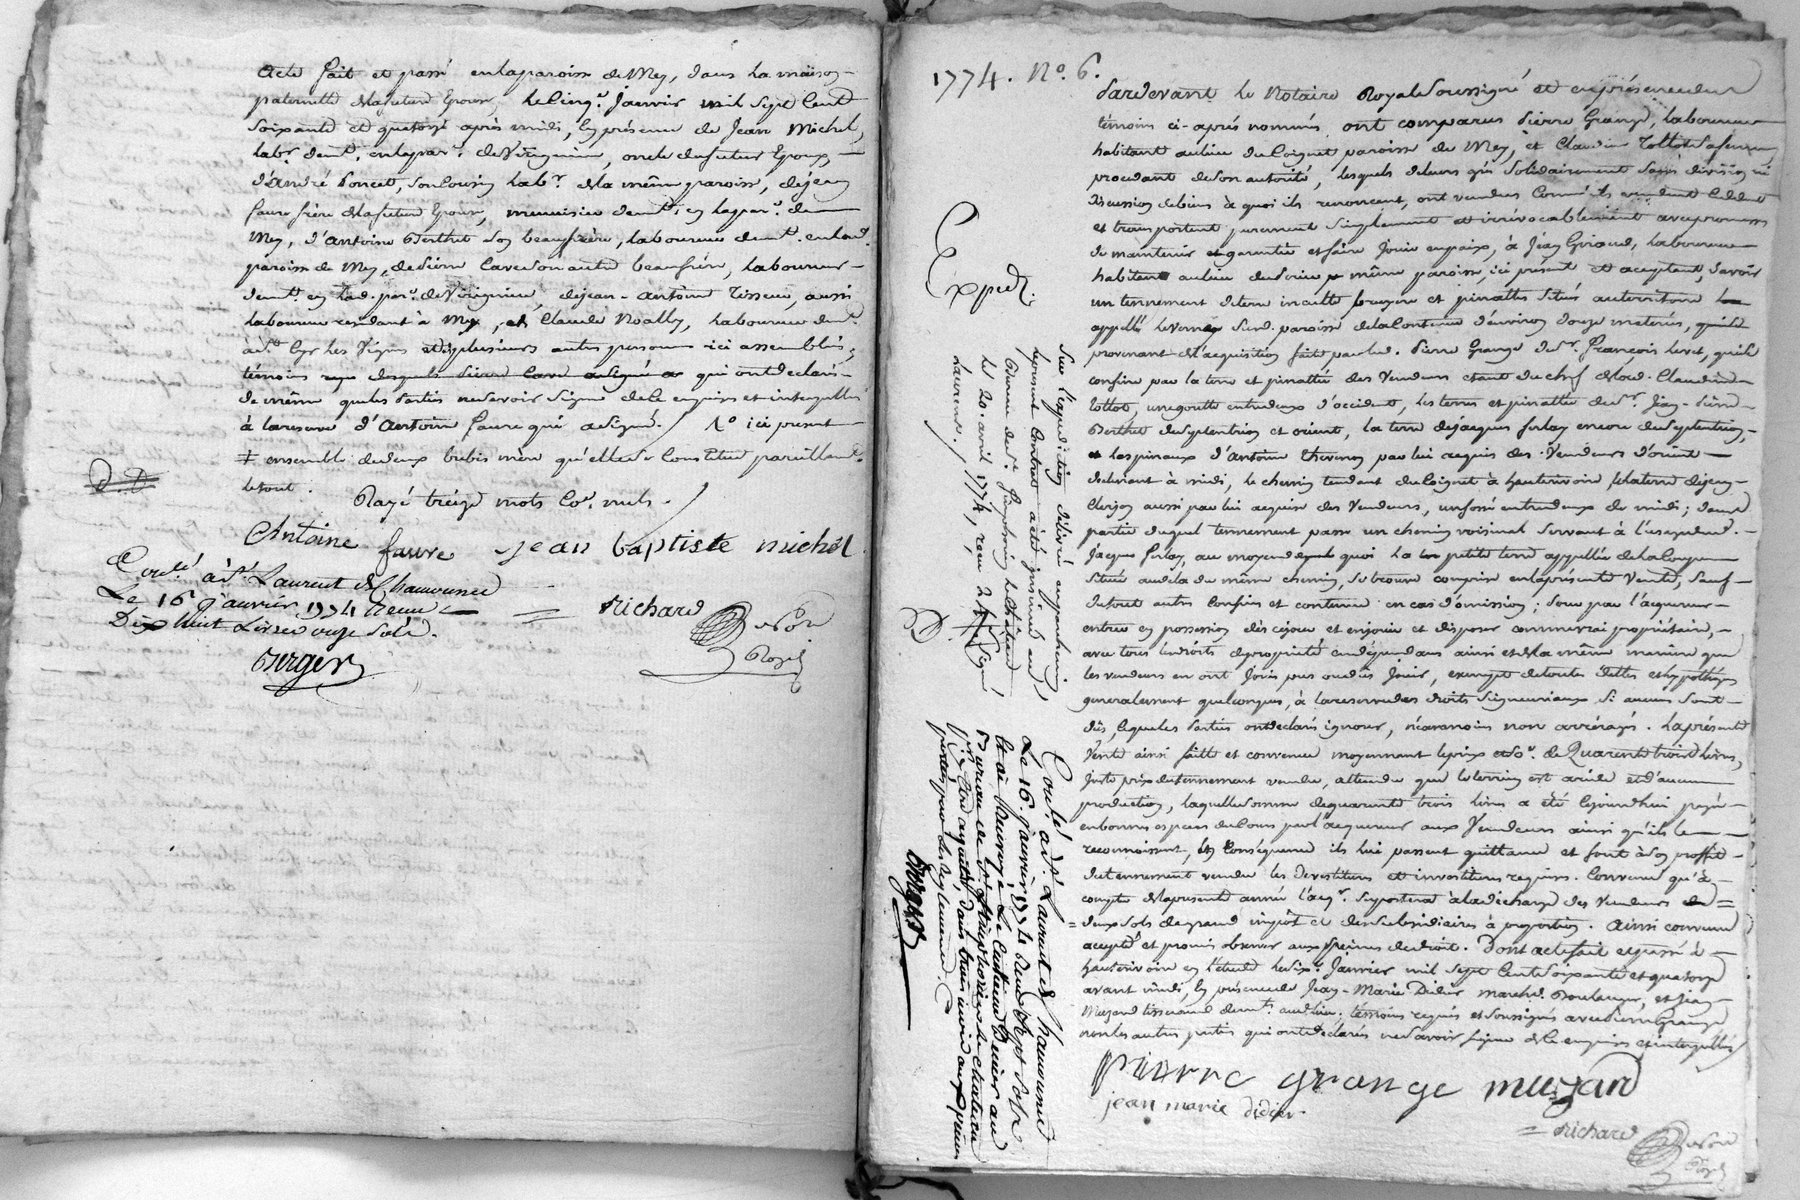 acte fait et passé en la paroisse de Mey, dans la maison
paternelle de la future Epouse, le cinq.e Janvier mil sept cent
soixante et quatorze après midi, En présence de Jean Michel,
lab.r dem.t en la par.e de Virigneux, oncle du futur Epoux,
d'André Poncet, son Cousin lab.r de la même paroisse, de Jean
faure frère de la future Epouse, menuisier dem.t en la par.e de
Mey, d'Antoine Berthet son beaufrère, laboureur dem.t en lad.
paroisse de Mey, de Pierre Cave son autre beaufrère, laboureur
dem.t en lad. par.e de Virigneux, de Jean-Antoine Tisseur, aussi
laboureur résidant à Mey, et Claude Noally, laboureur dem.t
à S.t Cyr les Vignes et de plusieurs autres personnes ici assemblés,
témoins desquels Pierre Cave a signé qui ont déclaré
de même que les parties ne savoir signer de ce enquises et interpellées
à la reserve d'Antoine faure qui a signé. ici present
‡ ensemble de deux brebis mère qu'elle se Constitue pareillem.t
le tout. Rayé treize mots co.e nuls.
Antoine faure jean baptiste michel
Conlé à S.t Laurent de Chamousset
Le 16 Janvier 1774 Reçu
Dix huit Livres onze sols.
Berger
Richard
No.re
Royal
1774. N.o 6.
Pardevant le Notaire Royal soussigné et en présence des
témoins ci-après nommés, ont comparus Pierre Grange, laboureur
habitant au lieu du Coignet paroisse de Mey, et Claudine Tottot sa femme
procedant de son autorité, lesquels de leurs gré solidairement sans division ni
discussion de biens à quoi ils renoncent, ont vendus Comme ils vendent Cèdent
et transportent purement simplement et irrévocablement avec promesse
de maintenir et garantir et faire Jouir en paix, à Jean Giraud, laboureur
habitant au lieu même paroisse, ici present et acceptant, savoir
un tennement de terre inculte bruyere et pinattes situés au territoire
appellé le Verney sus d. paroisse de la Contenue d'environ douze meterées,
provenant de l'acquisition faite par led. Pierre Grange de S.r François
confine par la terre et pinattée des Vendeurs étant du chef de lad. Claudine
Tottot, une goutte entredeux d'occident, les terres et pinattée de S.r Jean-Pierre
Berthet du septentrion et orient, la terre de Jacques ferlay encore du septentrion,
et les pinaux d'Antoine Thevenon par lui acquis des Vendeurs d'orient
declinant à midi, le chemin tendant du Coignet à hauterivoire et la terre de Jean
Clerjon aussi par lui acquise des Vendeurs, un fossé entredeux de midi; dans
partie duquel tennement passe un chemin voisinal servant à l'usage dud.
Jacques ferlay, au moyen de quoi la petite terre appellée de la
située au dela du même chemin, se trouve comprise en la présente Vente, sauf
du tout autres Confins et contenue en cas d'omission; pour par l'acquereur
entrer en possession dès ce jour et en jouir et disposer comme vrai propriétaire,
avec tous les droits de proprieté en dépendans ainsi et de la même maniere que
les vendeurs en ont jouis pus ou dûs Jouir, exempt de toutes dettes et hypothèques
generalement quelconques, à la reserve des droits seigneuriaux si aucuns sont
dûs, lesquels parties ont déclaré ignorer, néanmoins non arréragés. La présente
Vente ainsi faitte et convenue moyennant le prix et so.e de Quarente trois livres,
juste prix du tennement vendu, attendu que le terrein est aride et d'aucune
production, laquelle somme de quarente trois livres a été cejourdhui payée
en bonnes espèces de Cours par l'acquereur aux Vendeurs ainsi qu'ils le
reconnoissent, En Conséquence ils lui passent quittance et font à son proffit
du tennement vendu les devestitures et investitures requises. Convenu qu'à
compter de la presente année l'acq.r supportera à la décharge des Vendeurs
deux sols de grand impôt et des subsidiaires à proportion. ainsi convenu
accepté et promis observer aux peines de droit. Dont acte fait et passé à
hauterivoire en l'etude le six.e Janvier mil sept cent soixante et quatorze
avant midi, En presence de Jean-Marie Didier march.d Boulanger, et Jean
Muzard tisserand dem.t aud. lieu; témoins requis et soussignés avec Pierre Grange
non les autres parties qui ont déclarés ne savoir signer de ce enquises et interpellées
pierre grange muzard
jean marie didier
Richard
No.re
Royal
Exped.
Sur l'expédition délivrée en parchemin,
le présent contrat a été insinué au
Bureau de S.t Simphorien le chateau
le 20 avril 1774, reçu 2 signé
Laurens.
Conlé à S.t Laurent de Chamousset
Le 16 Janvier 1774 Reçu Sept Sols
Bureau de S.t Simphorien le Chateau
pour être acquitté dans trois mois aux peines
portées par les Reglemens
Berger